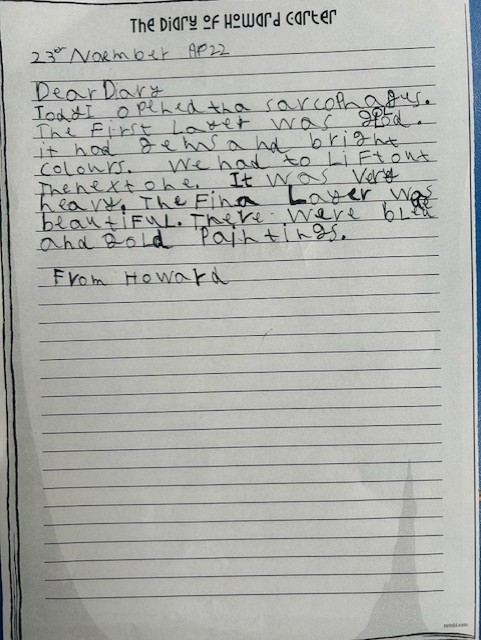 The Diary of Howard Carter
23rd Noember AP22
Dear Diary
TodyI opened tha sarcophagus.
The First Layer was glod.
it had gems and bright
colours. We had to Lift out
The next one. It was very
heavy. The Fina Layer was
beautiful. There were blue
and gold Paintings.
From Howard